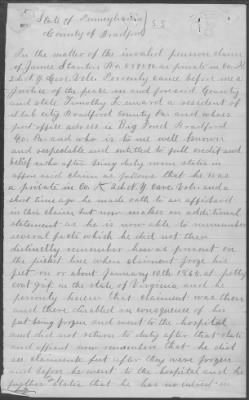 State of Pennsylvania
County of Bradford S.S.
In the matter of the invalid pension claim
of James Stanton No as private in Co. K
2d N.Y. Cav. Vols. Personly came before me a
Justice of the peace in and for said County
and State Timothy Leonard a resident of
city Bradford County Pa and whose
post office address is Big Pond Bradford
Co. Pa and who is to me well known
and respectable and entitled to full credit and
belief who after being duly sworn states in
affore said claim as follows that he was
a private in Co K 2d N.Y. Cav. Vols and a
short time ago he made oath to an affidavit
in this claim but now makes an additional
statement as he is now able to remember
several facts which he did not then
distinctly remember he was present on
the picket line when claiment froze his
feet on or about January 10th 1864 at
in the state of Virginia and he
personly knows that claiment was there
and there disabled in consequence of his
feet being frozen and went to the hospital
and did not return to duty after that date
and affient now remembers that he did
see claiments feet after they were frozen
and before he went to the hospital and he
further states that he has no interest in